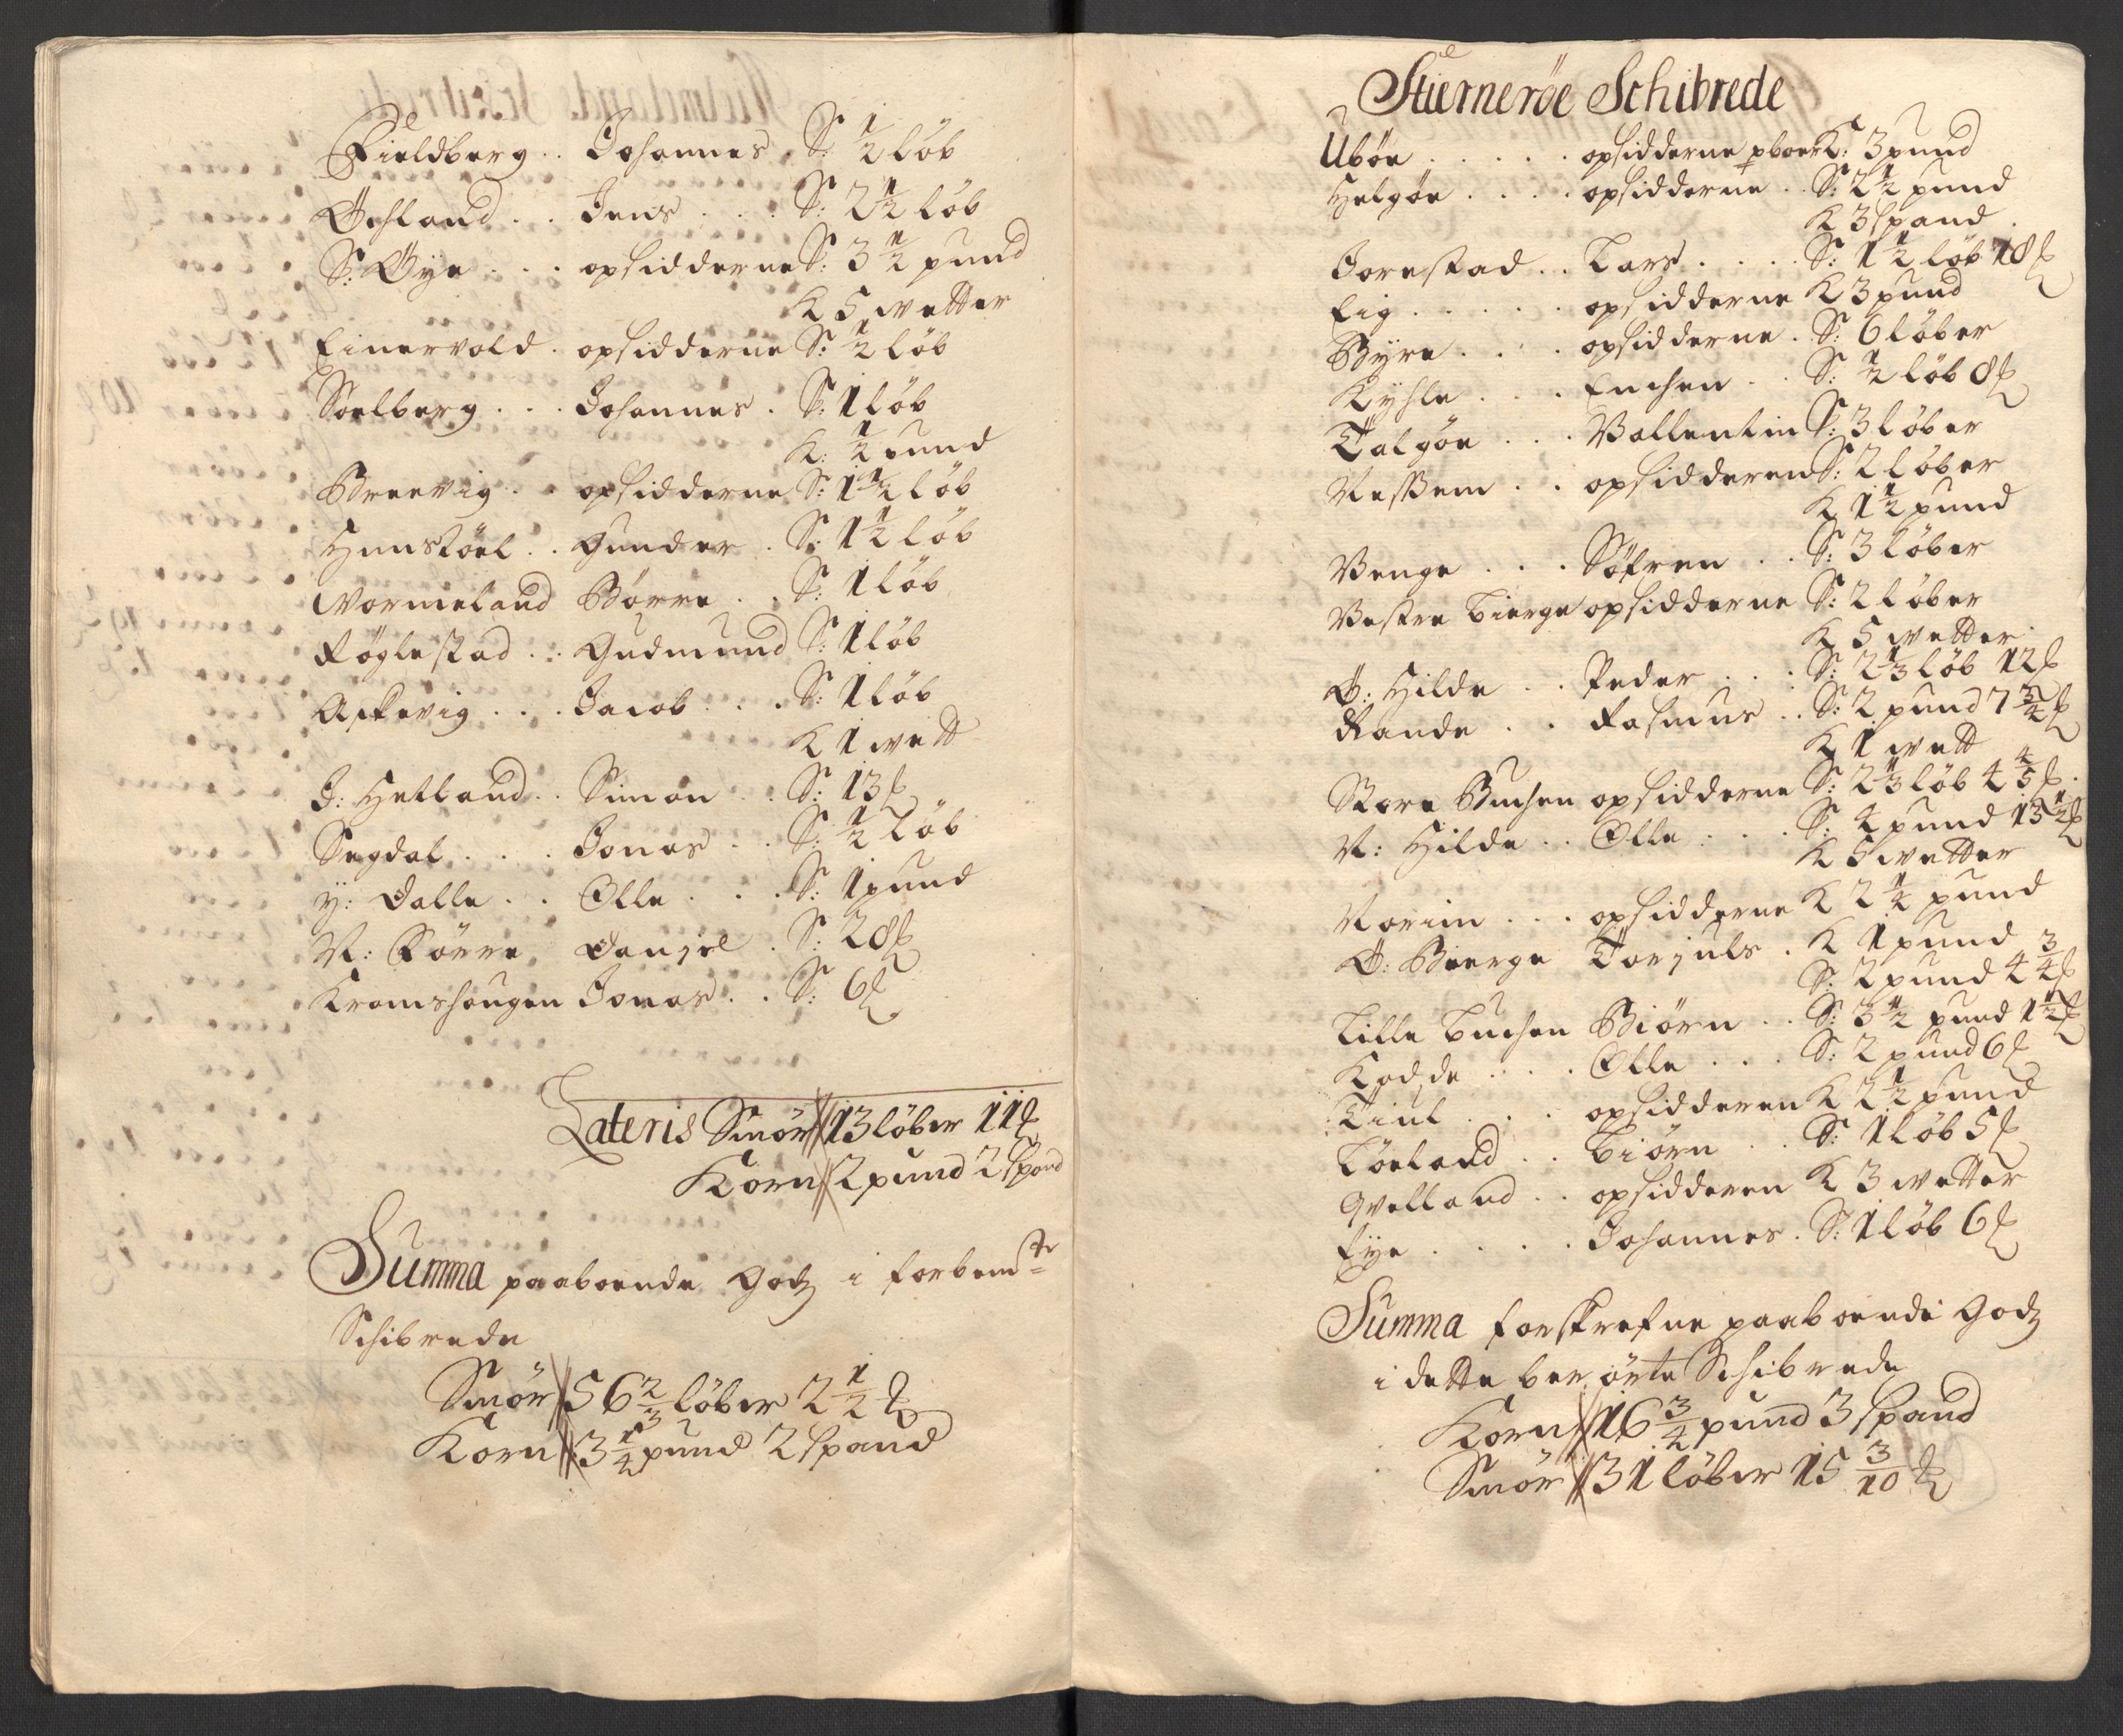 Fieldberg . . Johannes S: 1/2 löb
Öchland . . Jens . . . S: 2 1/2 löb
S: Øye . . . opsidderne S: 3 1/2 pund
K 5 wetter
Einervold . opsidderne S: 1/2 löb
Soelberg . . . Johannes . S: 1 löb
K: 1/2 pund
Breevig . . opsidderne S: 1 1/2 löb
Hunstöel . . Gunder . S: 1 1/2 löb
Wormeland Börre . . S: 1 löb
Röglestad . . Gudmund S: 1 löb
Askevig . . . Jacob . . . S: 1 löb
K 1 wett
J: Hetland . . Simon . . S: 13 ℔
Segdal . . . Jonas . . S: 1/2 löb
Y: Dalle . . Olle . . . S: 1 pund
N: Förre Danjel . S: 28 ℔
Kromshougen Jonas . . S: 6 ℔
Lateris Smör 13 löber 11 ℔
Korn 2 pund 2 spand
Summa paaboende Godz i forbemte
Schibrede
Smör 56 2/3 löber 2 1/2 ℔
Korn 3 1/4 pund 2 spand
Stierneröe Schibrede
Uböe . . . . . opsidderne pboer K: 3 pund
Helgöe . . . . opsidderne . . S: 2 1/2 pund
K 3 spand
Jorestad . . Lars . . . . S: 1 1/2 löb 18 ℔
Eig . . . . . opsidderne K 3 pund
Byre . . . . opsidderne . S: 6 löber
Kyhle . . . Enchen . . S: 1/2 löb 8 ℔
Talgöe . . . Vallentin S: 3 löber
Nessem . . opsidderen S: 2 löber
K 1 1/2 pund
Venge . . . Söfren . . S: 3 löber
Vestre Bierge opsidderne S: 2 löber
K 5 wetter
Ö: Hilde . . Peder . . . S: 2 1/3 löb 12 ℔
Rande . . Rasmus . . S: 2 pund 7 3/4 ℔
K 1 wett
Store Buchen opsidderne S: 2 1/3 löb 4 4/5 ℔
N: Hilde . . Olle . . . S: 4 pund 13 1/2 ℔
K 5 wetter
Norim . . . opsidderne K 2 1/2 pund
Ö: Bierge Torjuls . K 1 pund
S: 2 pund 4 3/4 ℔
Lille Buchen Biörn . . S: 3 1/2 pund 1 1/2 ℔
Kodde . . . . Olle . . . S: 2 pund 6 ℔
Tiul . . . opsidderen K 2 1/2 pund
Löeland . . Biörn . . S: 1 löb 5 ℔
Qvelland . . opsidderen K 3 wetter
Eye . . . . Johannes . S: 1 löb 6 ℔
Summa forskrefne paaboende Godz
i dette berörte Schibrede
Korn 16 3/4 pund 3 spand
Smör 31 löber 15 3/10 ℔